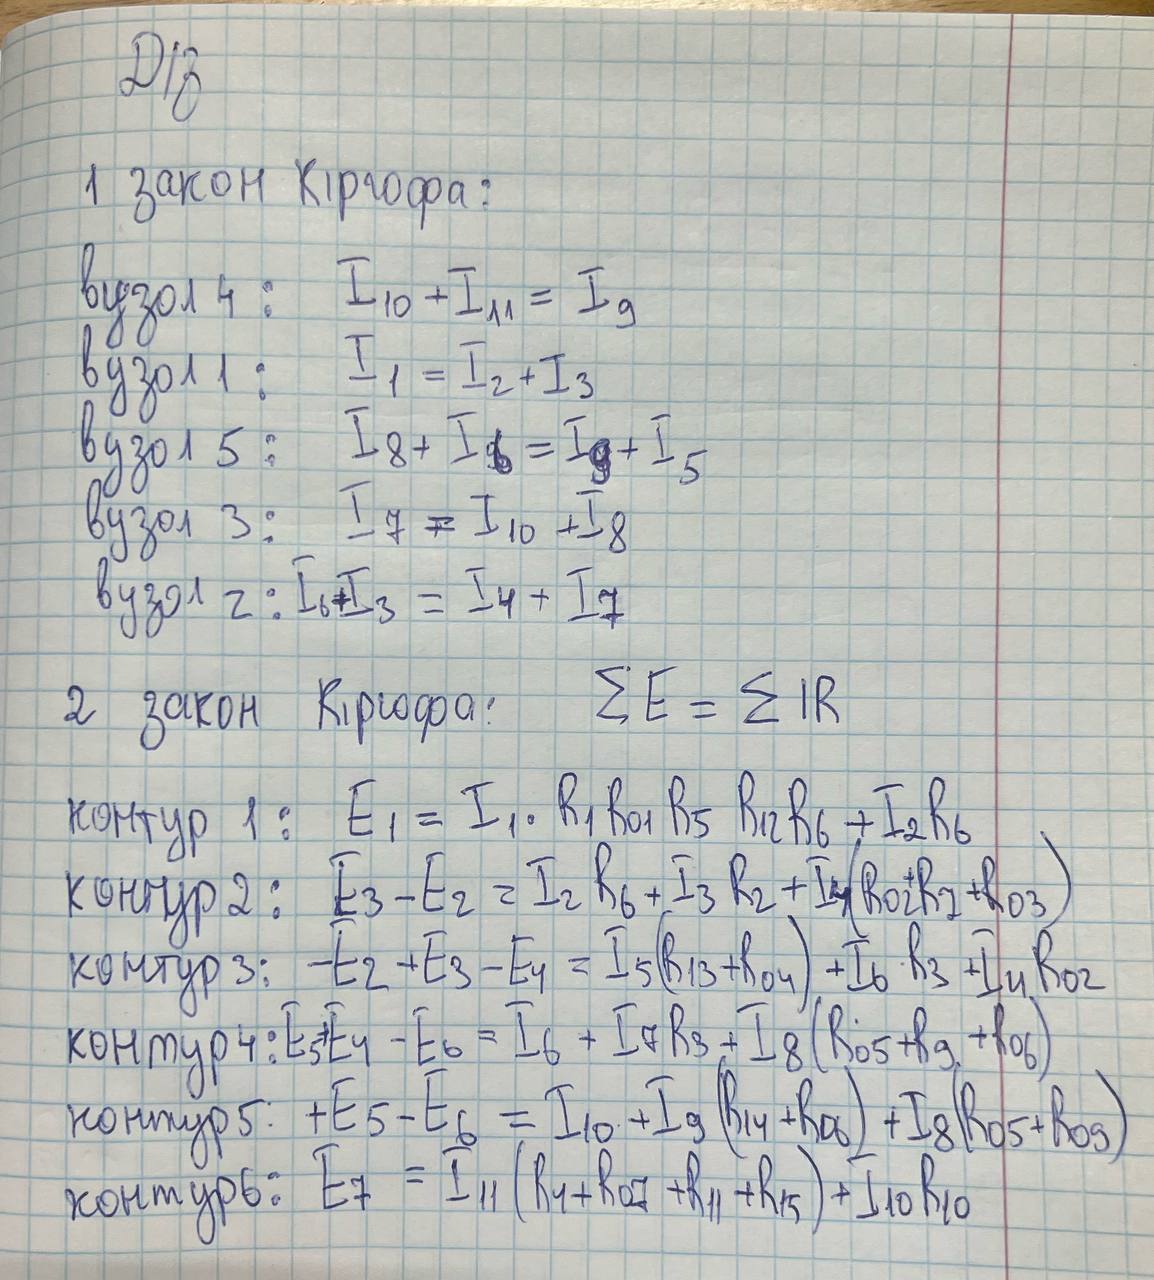 Д/з
1 закон Кіргофа:
вузол 4: I₁₀ + I₁₁ = I₉
вузол 1: I₁ = I₂ + I₃
вузол 5: I₈ + I₆ = I₉ + I₅
вузол 3: I₇ = I₁₀ + I₈
вузол 2: I₆ + I₃ = I₄ + I₇
2 закон Кіргофа: ΣE = ΣIR
контур 1: E₁ = I₁ · R₁ R₀₁ R₅ R₁₂ R₆ + I₂R₆
контур 2: E₃ - E₂ = I₂ R₆ + I₃ R₂ + I₄(R₀₂ + R₇ + R₀₃)
контур 3: -E₂ + E₃ - E₄ = I₅(R₁₃ + R₀₄) + I₆ · R₃ + I₄ R₀₂
контур 4: E₅ + E₄ - E₆ = I₆ + I₇R₃ + I₈(R₀₅ + R₉ + R₀₆)
контур 5: +E₅ - E₆ = I₁₀ + I₉(R₁₄ + R₀₆) + I₈(R₀₅ + R₀₉)
контур 6: E₇ = I₁₁(R₄ + R₀₇ + R₁₁ + R₁₅) + I₁₀R₁₀